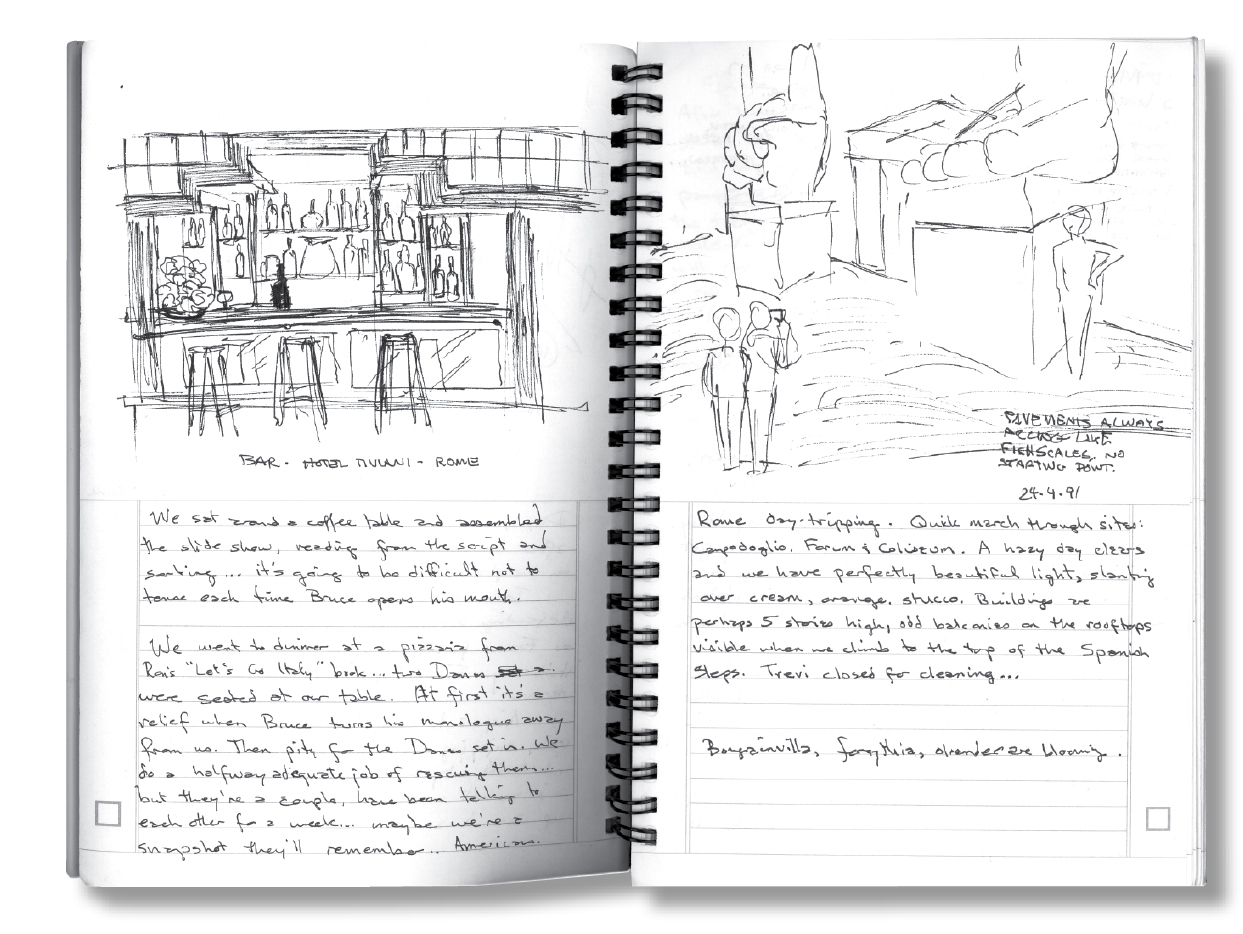 BAR - HOTEL TIVULANI - ROME
We sat around a coffee table and assembled
the slide show, reading from the script and
smiling... it's going to be difficult not to
tense each time Bruce opens his mouth.
We went to dinner at a pizzaria from
Ron's "Let's Go Italy" book... two Danes
were seated at our table. At first it's a
relief when Bruce turns his monologue away
from us. Then pity for the Danes set in. We
do a halfway adequate job of rescuing them...
but they're a couple, have been talking to
each other for a week... maybe we're a
snapshot they'll remember... Americans.
PAVEMENTS ALWAYS
ARCING LIKE
FISHSCALES, NO
STARTING POINT.
24·4·91
Rome day-tripping. Quick march through sites:
Campodoglio, Forum & Coliseum. A hazy day clears
and we have perfectly beautiful light, slanting
over cream, orange, stucco. Buildings are
perhaps 5 stories high, odd balconies on the rooftops
visible when we climb to the top of the Spanish
Steps. Trevi closed for cleaning...
Bougainvilla, forsythia, oleander are blooming.